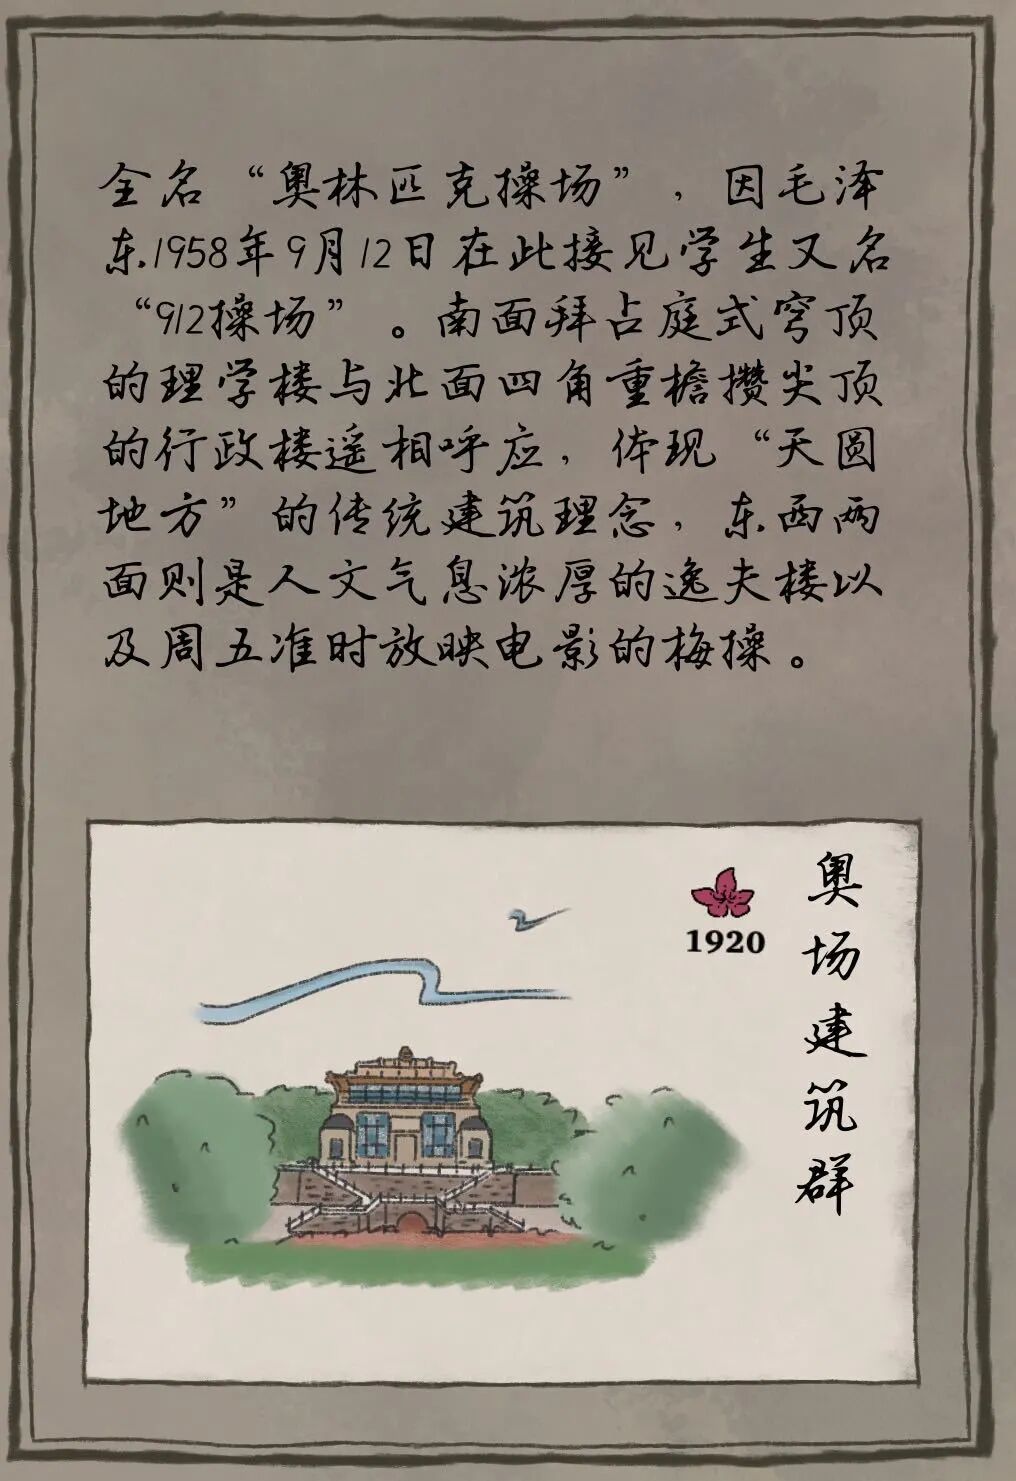 全名“奥林匹克操场”，因毛泽
东1958年9月12日在此接见学生又名
“912操场”。南面拜占庭式穹顶
的理学楼与北面四角重檐攒尖顶
的行政楼遥相呼应，体现“天圆
地方”的传统建筑理念，东西两
面则是人文气息浓厚的逸夫楼以
及周五准时放映电影的梅操。
奥场建筑群
1920